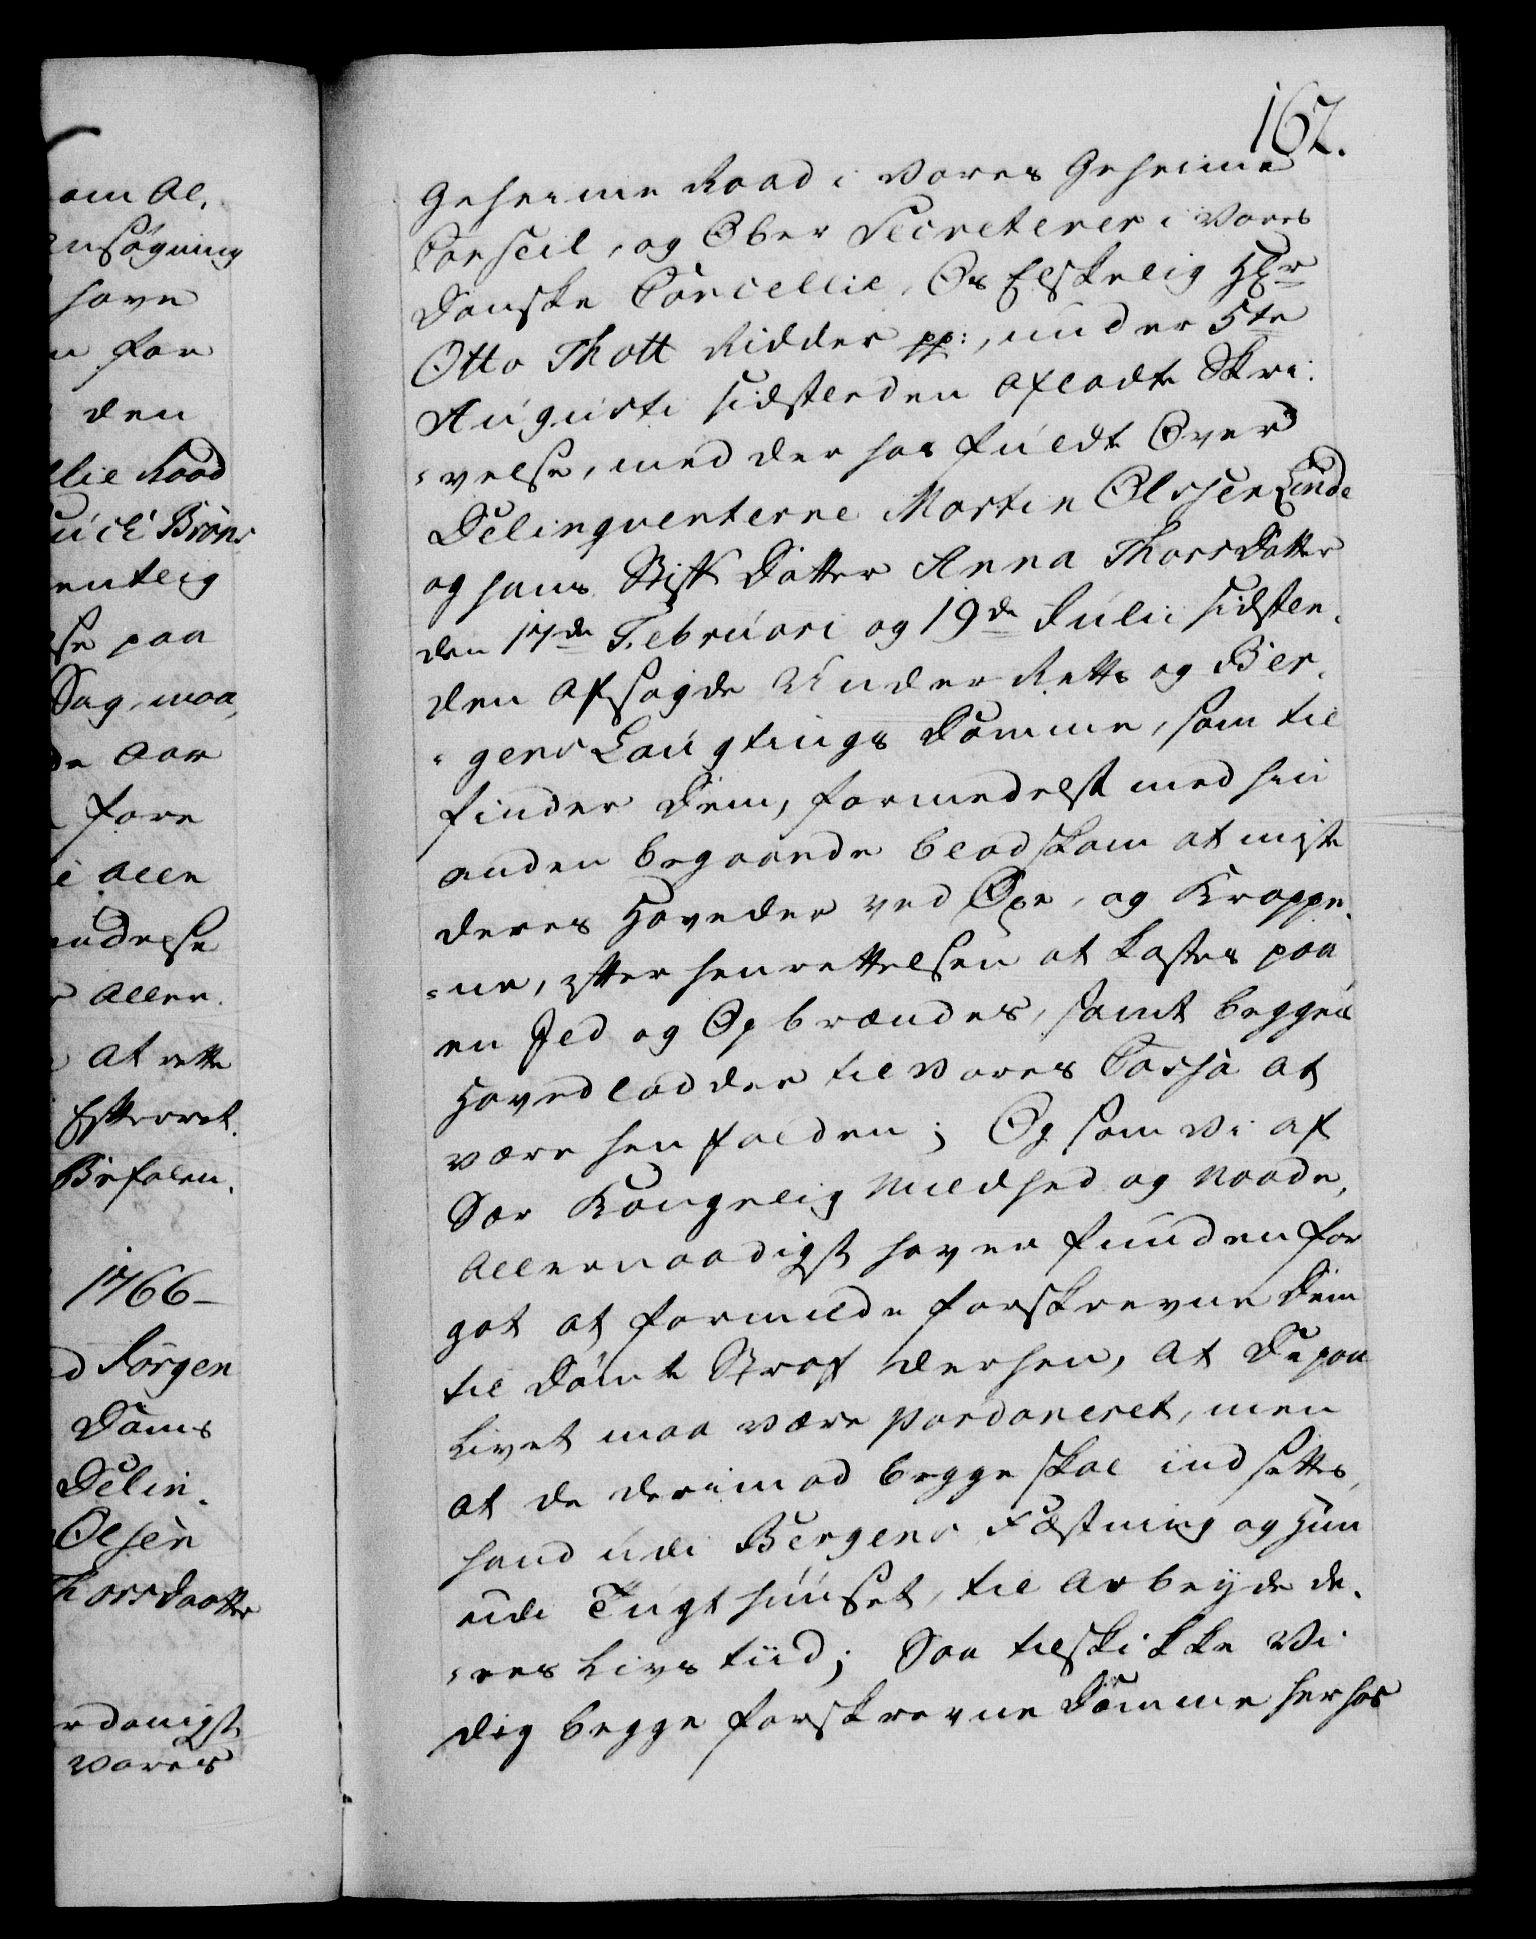 162.
Geheime Raad i Vores Geheime
Conseil, og Ober Secreterer i Vores
Danske Cancellie, Os Elskelig Hr
Otto Thott Ridder pp:, under 5te
Augusti sidstleden afladte Skri-
velse, med der hos fuldt Over
Delinqventerne Morten Olssen Linde
og hans Stiff Datter Anna Thorsdatter
den 17de Februari og 19de Julii sidstle-
den afsagde Under-Retts og Ber-
gens Laugtings Domme, som til
finder dem, formedelst med hin
anden begaaende blodskam at miste
deres Hoveder ved Øxe, og Kroppe-
ne, efter henrettelsen at kastes paa
en Ild og Opbrændes, samt begges
Hovedlodder til Vores Cassa at
være henfalden; Og som Vi af
Sær Kongelig Mildhed og Naade,
Allernaadigst haver funden for
got at formilde forskrevne Dem
til dømte Straf derhen, at De paa
Livet maa være pardoneret, men
at de derimod begge skal indsettes,
hand udi Bergens Fæstning og Hun
udi Tugthuuset, til Arbeyde de-
res Livs tiid; Saa tilskikke Vi
dig begge forskrevne Domme her hos
om Al,
ansøgning
have
for
den
Raad
paa
Sag, maa,
Aar
fore
Alle
at rette
Efterret.
Befalen.
1766-
Jørgen
Doms
Delin-
Olsen
Thorsdaatter
Vores